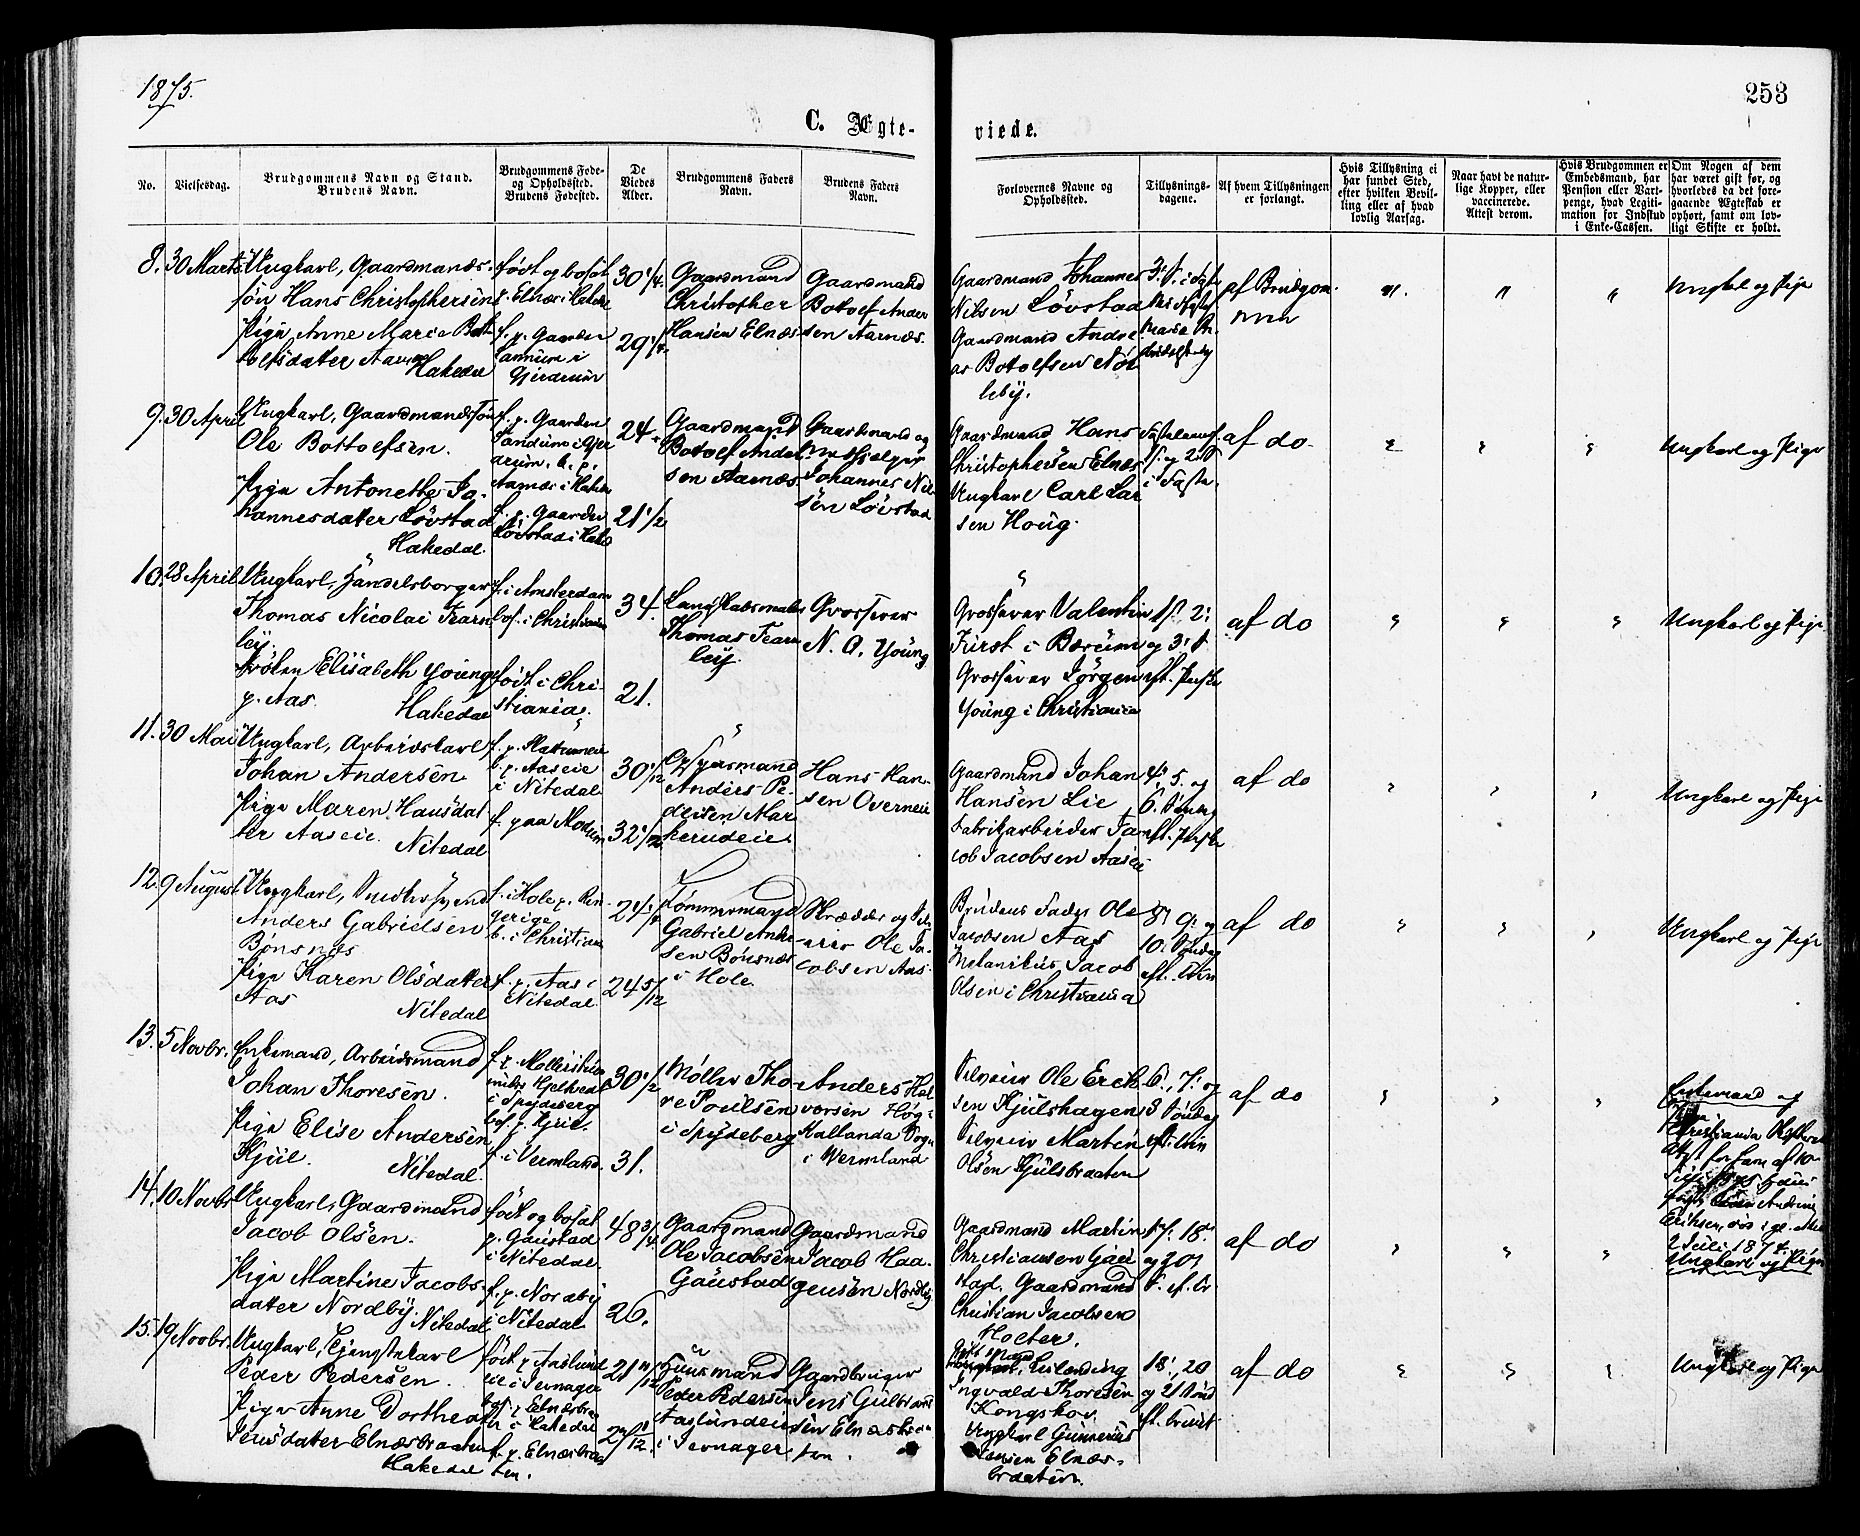 1875.
253
C. Ægte-
viede.
No.
Vielsesdag.
Brudgommens Navn og Stand.
Brudens Navn.
Brudgommens Føde-
og Opholdssted.
Brudens Fødested.
De
Viedes
Alder.
Brudgommens Faders
Navn.
Brudens Faders
Navn.
Forlovernes Navne og
Opholdssted.
Tillysnings-
dagene.
Af hvem Tillysningen
er forlangt.
Hvis Tillysning ei
har fundet Sted,
efter hvilken Bevil-
ling eller af hvad
lovlig Aarsag.
Naar havt de natur-
lige Kopper, eller
vaccinerede.
Attest derom.
Hvis Brudgommen er
Embedsmand, har
Pension eller Vart-
penge, hvad Legiti-
mation for Indskud
i Enke-Cassen.
Om Nogen af dem
har været gift før, og
hvorledes da det fore-
gaaende Ægteskab er
ophørt, samt om lov-
ligt Skifte er holdt.
8.
30 Marts
Ungkarl, Gaardmands-
søn Hans Christophersen
Pige Anne Marie Bot-
olfsdater Aarnæs
Hakedal
født og bosat
p. Elnæs i Hakedal
f. p. Gaarden
i
Gjerdrum
30 1/4
29 1/4
Gaardmand
Christopher
Hansen Elnæs
Gaardmand
Botolf Ander
sen Aarnæs.
Gaardmand Johannes
Nilsen Løvstad
Gaardmand Andre
as Botolfsen Nør
leby.
af Brudgom
men
Ungkarl og Pige
9.
30 April
Ungkarl, Gaardmandssøn
Ole Bottolfsen.
Pige Antonette Jo-
hannesdater Løvstad
Hakedal.
f. p. Gaarden
Sandum i Gjer
drum, b. p.
Aarnæs i Hakedal
f. p. Gaarden
Løvstad i Hakd
24
21 1/2
Gaardmand
Botolf Ander
sen Aarnæs
Gaardmand og
Medhjælper
Johannes Nil
sen Løvstad
Gaardmand Hans
Christophersen Elnæs
Ungkarl Carl Lar
sen Houg.
Fastelavns
1. og 2. S
i Faste.
af do
Ungkarl og Pige
10.
28 April
Ungkarl, Handelsborger
Thomas Nicolai Fearn
ley.
Frøken Elisabeth Young
p. Aas.
Hakedal
f. i Amsterdam
bos. i Christiania
født i Chri-
stiania.
34.
21.
Landskabsmaler
Thomas Fearn
ley.
Grosserer
N. O. Young
Grosserer Valentin
Fürst i Bærum
Grosserer Jørgen
Young i Christiania
1s. 2.
og 3. S.
eft. Paaske
af do
Ungkarl og Pige
11.
30 Mai
Ungkarl, Arbeidskarl
Johan Andersen
Pige Maren Hansdat
ter Aaseie.
Nitedal
b. p. Aaseie
i Nitedal
f. paa Modum
30 1/12
Opsynsmand
Anders Pe-
dersen Mar
kerudeie.
Hans Han-
sen Overneie
Gaardmand Johan
Hansen Lie
Fabrikarbeider Ja
cob Jacobsen Aaseie
4. 5. og
6. Søndag
eft. Paaske
af do
Ungkarl og Pige
12.
9 August
Ungkarl, Smedsvend
Anders Gabrielsen
Bønsnæs
Pige Karen Olsdatter
Aas
Nitedal
f. i Hole p. Rin-
gerige
b. i Christiania
f. p. Aas i
Nitedal.
21 1/4
24 5/12
Tømmermand
Gabriel Ander
sen Bønsnæs
i Hole
Skrædder og
Ole Ja-
cobsen Aas.
Brudens Fader Ole
Jacobsen Aas
Mekanikus Jacob
Olsen i Christiania
8. 9. og
10. Søndag
eft. Trin
af do
Ungkarl og Pige
13.
5 Novbr.
Enkemand, Arbeidsmand
Johan Thoresen.
Pige Elise Andersen
Kjul.
Nitedal.
i Spydeberg
bos. p. Kjul.
f. i Vermland.
30 1/2
31.
Møller Tho-
re Poulsen
i Spydeberg
Anders Hal
vorsen Høg
i Wermland
Ole Erik
sen Kjulshagen
Martin
Olsen Kjulsbraaten
6., 7. og
8 Søndag
eft. Trin
af do
Enkemand og
Pige
2 Juli 1874.
14.
10 Novbr
Ungkarl, Gaardmand
Jacob Olsen.
Pige Martine Jacobs-
dater Nordby.
Nitedal
født og bosat
p. Gaustad
i Nitedal.
f. p. Nordby
i Nitedal
48 3/4
26.
Gaardmand
Ole Jacobsen
Gaustad
Gaardmand
Jacob Haa-
gensen Nordby
Gaardmand Martin
Christiansen Gau
stad. Gaardmand
Christian Jacobsen
Holter.
17. 18.
og 20
S. ef. Tr
af do
Ungkarl og Pige
15.
19 Novbr.
Ungkarl, Tjenestekarl
Peder Pedersen.
Pige Anne Dorthea
Jensdater Elnæsbraaten
Hakedal
født p. Aaslund
eie i Jevnager
bos. p. Elnæsbra
ten i Hakedal
f. p. Elnæsbraa
ten.
21 11/12
Huusmand
Peder Pedersen
Aaslundeie
i Jevnager
Gaardbruger
Jens Gulbrand
sen Elnæsbraa
ten.
Ingvald Thoresen
Kongskov
Ungkarl Gunnerius
Hansen Elnæs-
braaten.
18. 20
og 21 Sønd
eft. Trinit
af do
Ungkarl og Pige